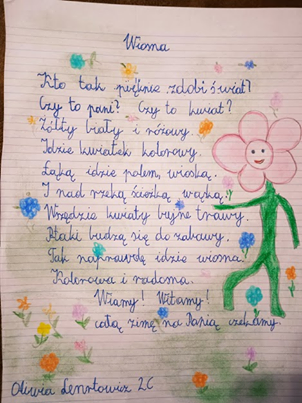 Wiosna
Kto tak pięknie zdobi świat?
Czy to pani? Czy to kwiat?
Żółty biały i różowy.
Idzie kwiatek kolorowy.
Łąką idzie polem, wioską.
I nad rzeką ścieżką wąską.
Wszędzie kwiaty bujne trawy.
Ptaki budzą się do zabawy.
Tak naprawdę idzie wiosna
Kolorowa i radosna.
Wiamy! Witamy!
całą zimę na Panią czekamy.
Oliwia 2C